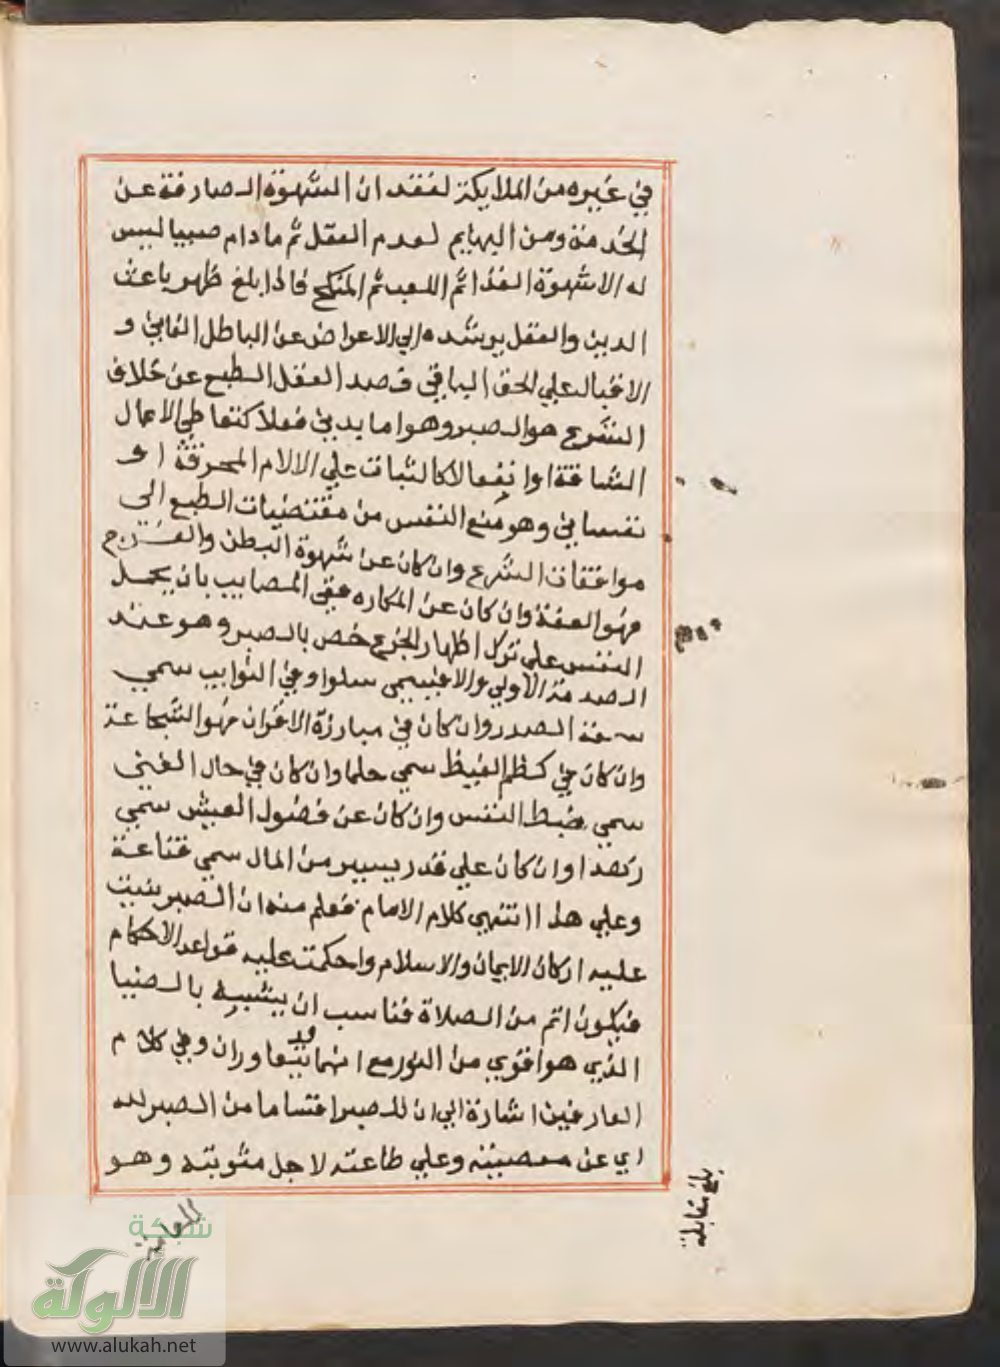 في غيره من الملايكة لفقدان الشهوة الصارفة عن
الخدمة ومن البهايم لعدم العقل ثم ما دام صبيا ليس
له الا شهوة الغذا ثم اللعب ثم المنكح فاذا بلغ ظهر باعث
الدين والعقل يرشده الي الاعراض عن الباطل الفاني و
الاقبال علي الحق الباقي فصد العقل الطبع عن خلاف
الشرع هو الصبر وهو اما بدني فعلا كتعاطي الاعمال
الشاقة او انفعالا كالثبات علي الالام المحرقة او
نفساني وهو منع النفس من مقتضيات الطبع الى
موافقات الشرع وان كان عن شهوة البطن والفرج
فهو العفة وان كان عن المكاره ففي المصايب بان يحمل
النفس علي ترك اظهار الجزع خص بالصبر وهو عند
الصدمة الاولي والا فيسمي سلوا وفي النوايب سمي
سعة الصدر وان كان في مبارزة الاقران فهو الشجاعة
وان كان في كظم الغيظ سمي حلما وان كان في حال الغني
سمي ضبط النفس وان كان عن فضول العيش سمي
زهدا وان كان علي قدر يسير من المال سمي قناعة
وعلي هذا انتهي كلام الامام فعلم منه ان الصبر بنيت
عليه اركان الايمان والاسلام واحكمت عليه قواعد الاحكام
فيكون اتم من الصلاة فناسب ان يشبه بالضيا
الذي هو اقوي من النور مع انهما قد يتعاوران وفي كلام
العارفين اشارة الي ان للصبر اقساما من الصبر لله
اي عن معصيته وعلي طاعته لاجل مثوبته وهو
بلغ مقابلة
شبكة
الألوكة
www.alukah.net